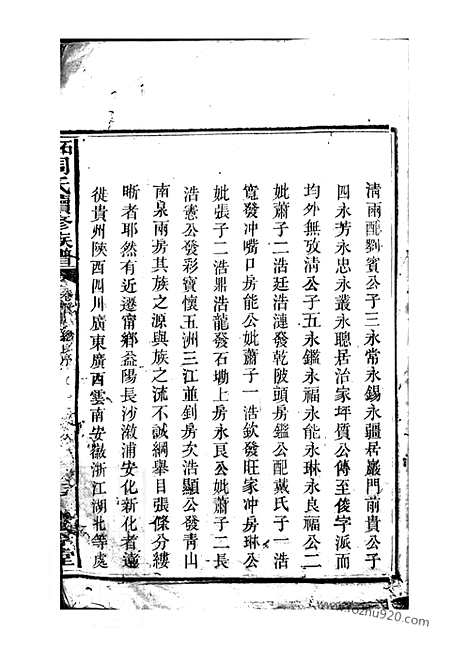 清兩配劉賓公子三永常永錫永疆居巖門前貴公子
四永芳永忠永叢永聰居治家坪質公傳至俊字派而
均外無攷淸公子五永鑑永福永能永琳永良福公二
妣蕭子二浩廷浩漣發乾陂頭房鑑公配戴氏子一浩
寬發冲嘴口房能公妣蕭子一浩欽發旺家冲房琳公
妣張子二浩鼎浩龍發石塘上房永良公妣蕭子二長
浩憲公發彩賓懷五洲三江並釗房次浩顯公發青山
南泉兩房其族之源與族之流不誠綱舉目張條分縷
晰者耶然有近遷甯鄉益陽長沙漵浦安化新化者遠
徙貴州陝西四川廣東廣西雲南安徽浙江湖北等處
石周氏續修族譜
堂
www.yizhu920.com